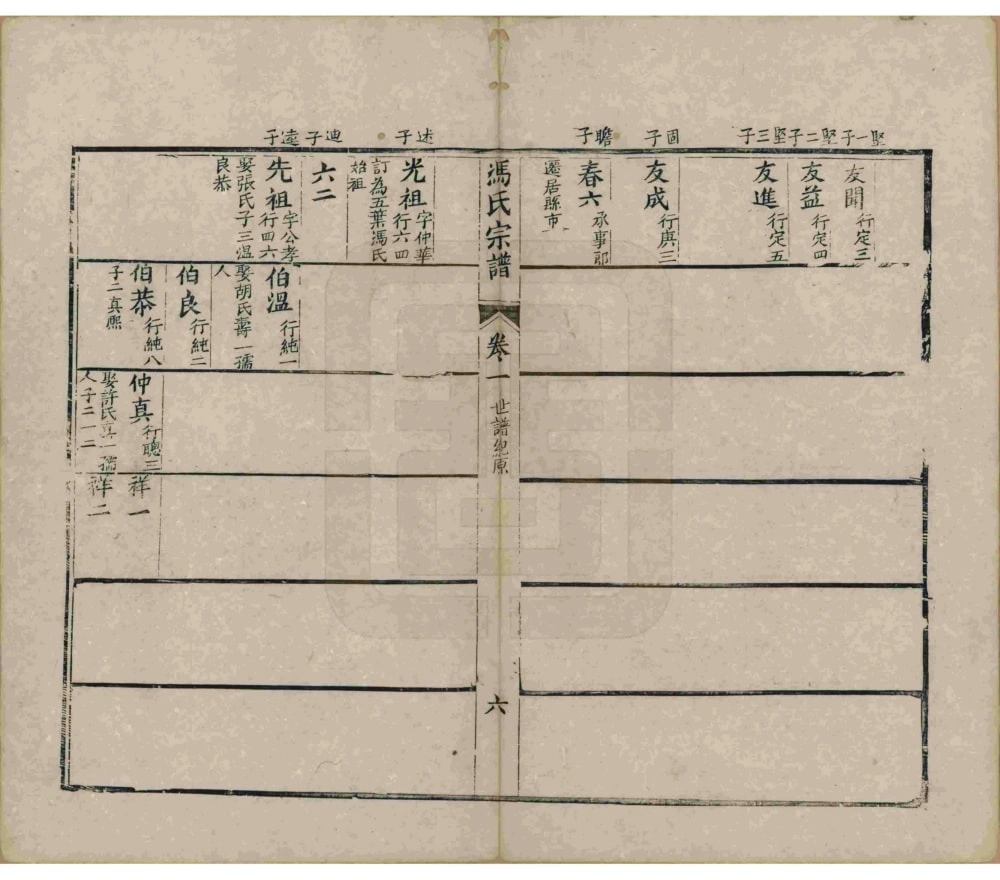 堅一子
友聞 行定三
堅二子
友益 行定四
堅三子
友進 行定五
固子
友成 行庚三
瞻子
春六 承事郎
遷居縣市
馮氏宗譜
卷一
世譜紀原
六
述子
光祖 字仲華 行六四
訂為五葉馮氏
始祖
迪子
六二
逵子
先祖 字公孝 行四六
娶張氏子三溫
良恭
伯溫 行純一
娶胡氏壽一孺
人
伯良 行純二
伯恭 行純八
子二真熙
仲真 行聰三
娶許氏真一孺
人子二一二
祥一
祥二